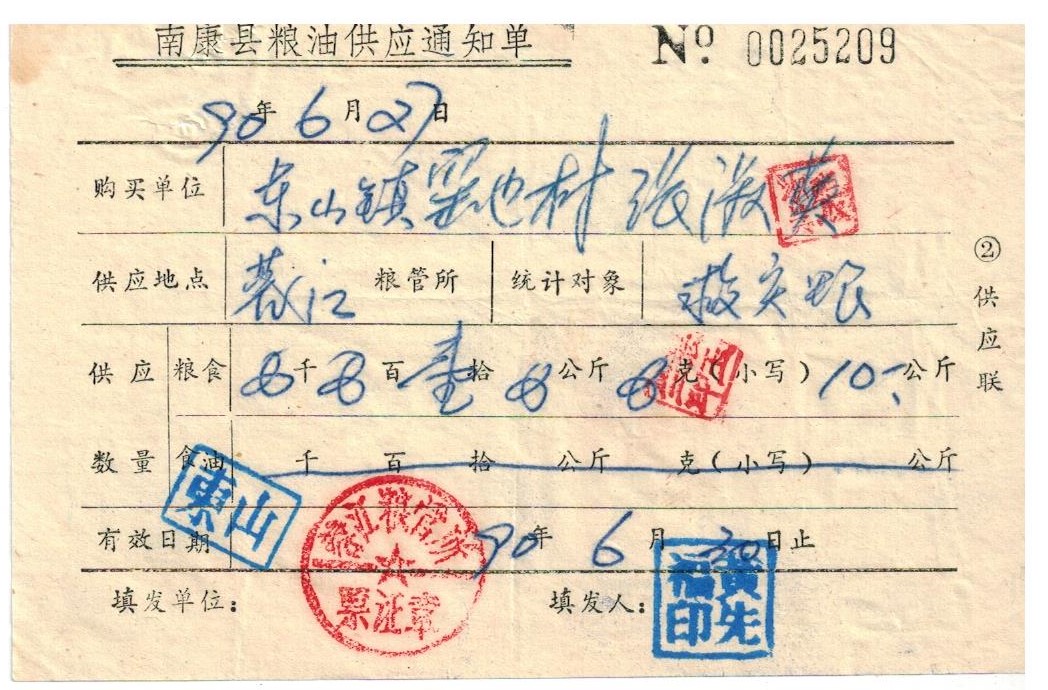 南康县粮油供应通知单 Nº 0025209
90年6月27日
购买单位 东山镇 村 张淑英
供应地点 蓉江 粮管所 统计对象 救灾粮
供应 粮食 0千0百壹拾0公斤0克(小写)10-公斤
数量 食油 千 百 拾 公斤 克(小写) 公斤
東山
有效日期 90年6月30日止
填发单位: 填发人:
蓉江粮管所
票证章
黄先福印
②供应联